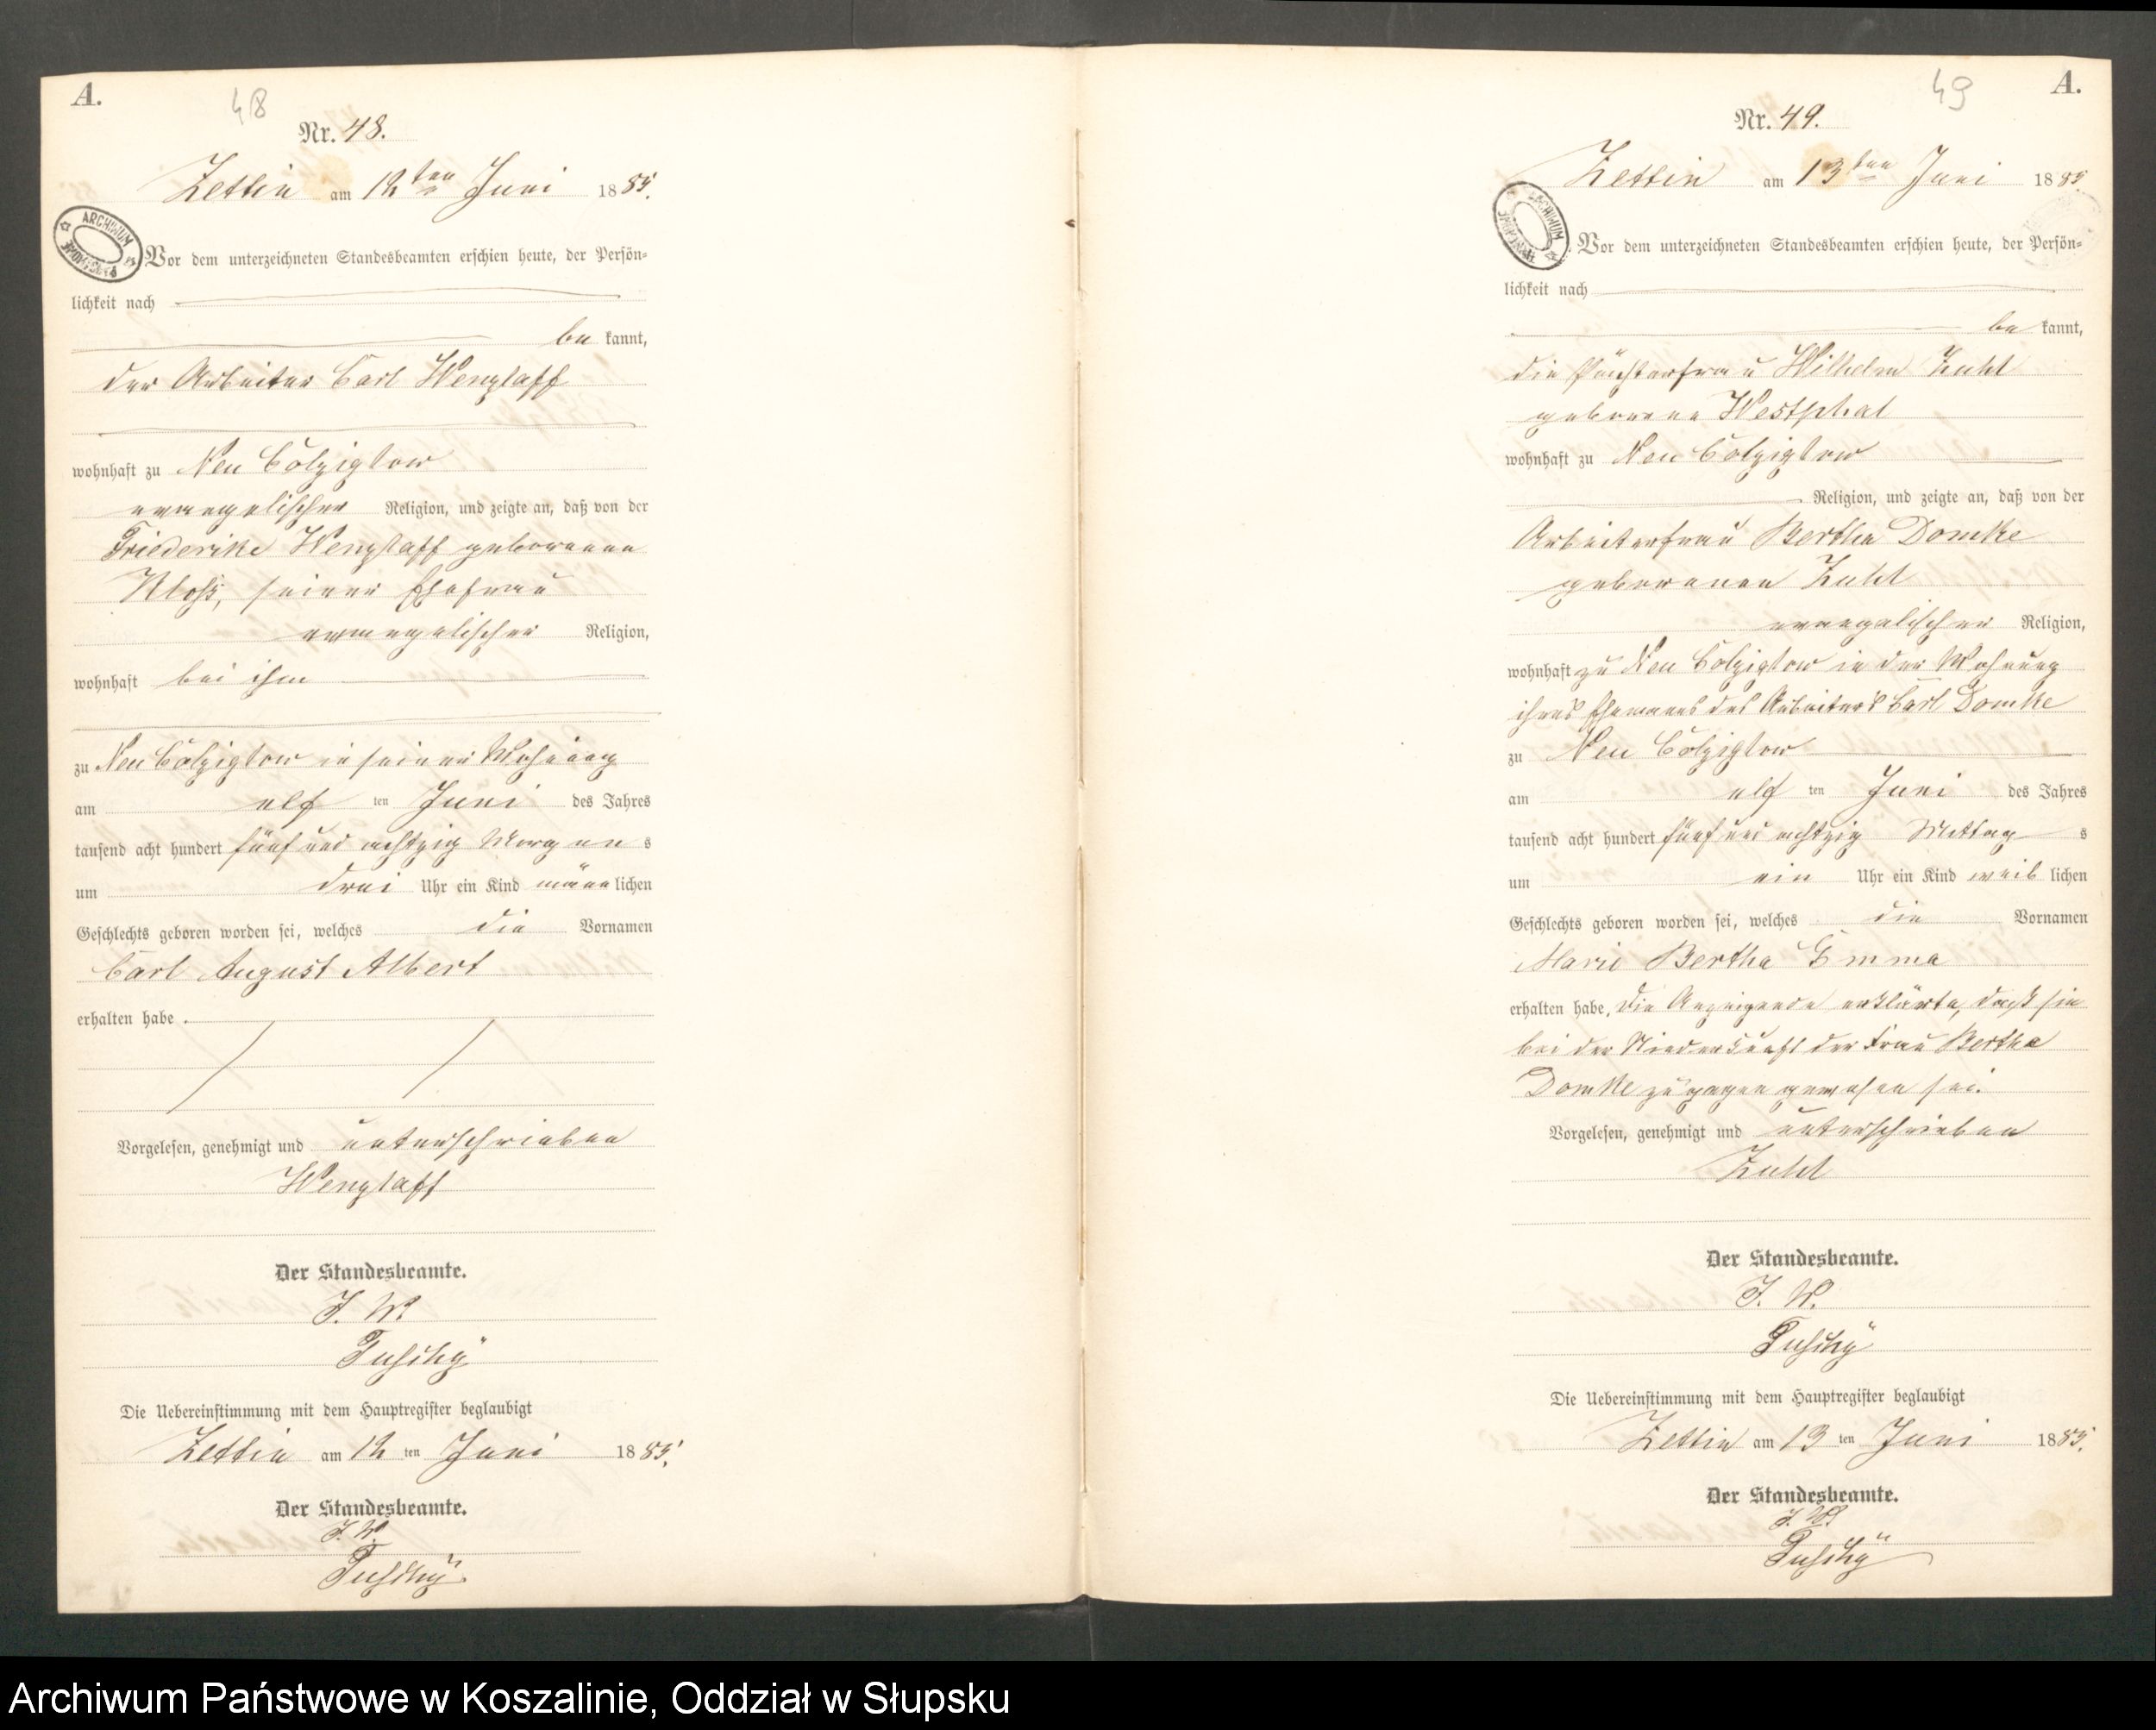 A.
48
Nr. 48.
Zettin am 12ten Juni 1885.
ARCHIWUM
Vor dem unterzeichneten Standesbeamten erschien heute, der Persön-
lichkeit nach
be kannt,
der Arbeiter Carl Wenzlaff
wohnhaft zu Neu Colziglow
evangelischer Religion, und zeigte an, daß von der
Friederike Wenzlaff geborenen
Kloss, seiner Ehefrau
evangelischer Religion,
wohnhaft bei ihm
zu Neu Colziglow in seiner Wohnung
am elf ten Juni des Jahres
tausend acht hundert fünf und achtzig Morgen s
um drei Uhr ein Kind männlichen
Geschlechts geboren worden sei, welches die Vornamen
Carl August Albert
erhalten habe.
Vorgelesen, genehmigt und unterschrieben
Wenzlaff
Der Standesbeamte.
J. V.
Die Uebereinstimmung mit dem Hauptregister beglaubigt
Zettin am 12 ten Juni 1885.
Der Standesbeamte.
J. V.
49
A.
Nr. 49.
Zettin am 13ten Juni 1885.
ARCHIWUM
Vor dem unterzeichneten Standesbeamten erschien heute, der Persön-
lichkeit nach
be kannt,
die Pächterfrau Wilhelm Zuhl
geborene Westphal
wohnhaft zu Neu Colziglow
Religion, und zeigte an, daß von der
Arbeiterfrau Bertha Domke
geborenen Zuhl
evangelischer Religion,
wohnhaft zu Neu Colziglow in der Wohnung
ihres Ehemanns des Arbeiters Carl Domke
zu Neu Colziglow
am elf ten Juni des Jahres
tausend acht hundert fünf und achtzig Mittag s
um ein Uhr ein Kind weib lichen
Geschlechts geboren worden sei, welches die Vornamen
Marie Bertha Emma
erhalten habe, die Anzeigende erklärte, daß sie
bei der Niederkunft der Frau Bertha
Domke zugegen gewesen sei.
Vorgelesen, genehmigt und unterschrieben
Zuhl
Der Standesbeamte.
J. V.
Die Uebereinstimmung mit dem Hauptregister beglaubigt
Zettin am 13 ten Juni 1885.
Der Standesbeamte.
J. V.
Archiwum Państwowe w Koszalinie, Oddział w Słupsku